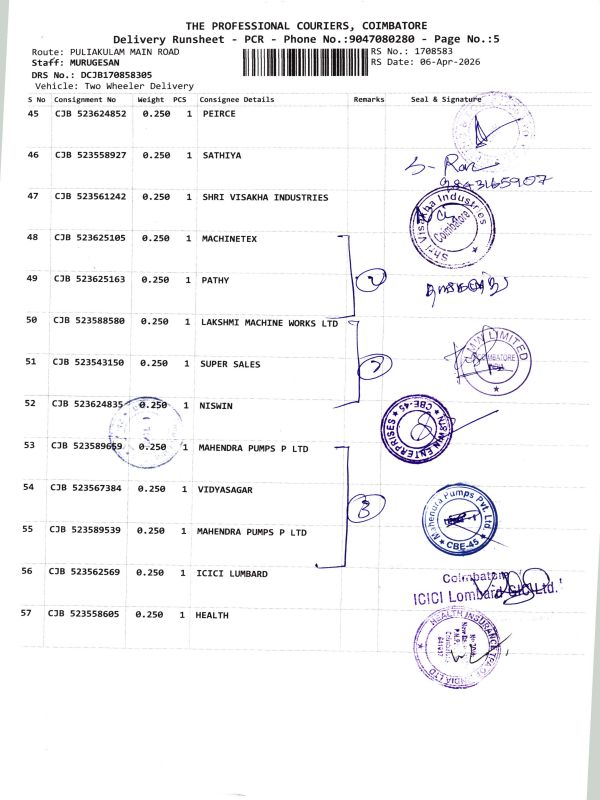 THE PROFESSIONAL COURIERS, COIMBATORE
Delivery Runsheet - PCR - Phone No.:9047080280 - Page No.:5
Route: PULIAKULAM MAIN ROAD
RS No.: 1708583
Staff: MURUGESAN
RS Date: 06-Apr-2026
DRS No.: DCJB170858305
Vehicle: Two Wheeler Delivery
S No Consignment No Weight PCS Consignee Details Remarks Seal & Signature
45 CJB 523624852 0.250 1 PEIRCE
46 CJB 523558927 0.250 1 SATHIYA
9843165907
47 CJB 523561242 0.250 1 SHRI VISAKHA INDUSTRIES
Shri Visakha Industries
Coimbatore
48 CJB 523625105 0.250 1 MACHINETEX
49 CJB 523625163 0.250 1 PATHY
2
50 CJB 523588580 0.250 1 LAKSHMI MACHINE WORKS LTD
51 CJB 523543150 0.250 1 SUPER SALES
LIMITED
COIMBATORE
52 CJB 523624835 0.250 1 NISWIN
NISWIN ENTERPRISES
CBE-45
53 CJB 523589669 0.250 1 MAHENDRA PUMPS P LTD
54 CJB 523567384 0.250 1 VIDYASAGAR
3
Mahendra Pumps Pvt. Ltd.
CBE-45
55 CJB 523589539 0.250 1 MAHENDRA PUMPS P LTD
56 CJB 523562569 0.250 1 ICICI LUMBARD
Coimbatore
ICICI Lombard GIC Ltd.
57 CJB 523558605 0.250 1 HEALTH
HEALTH INSURANCE TPA OF INDIA LTD